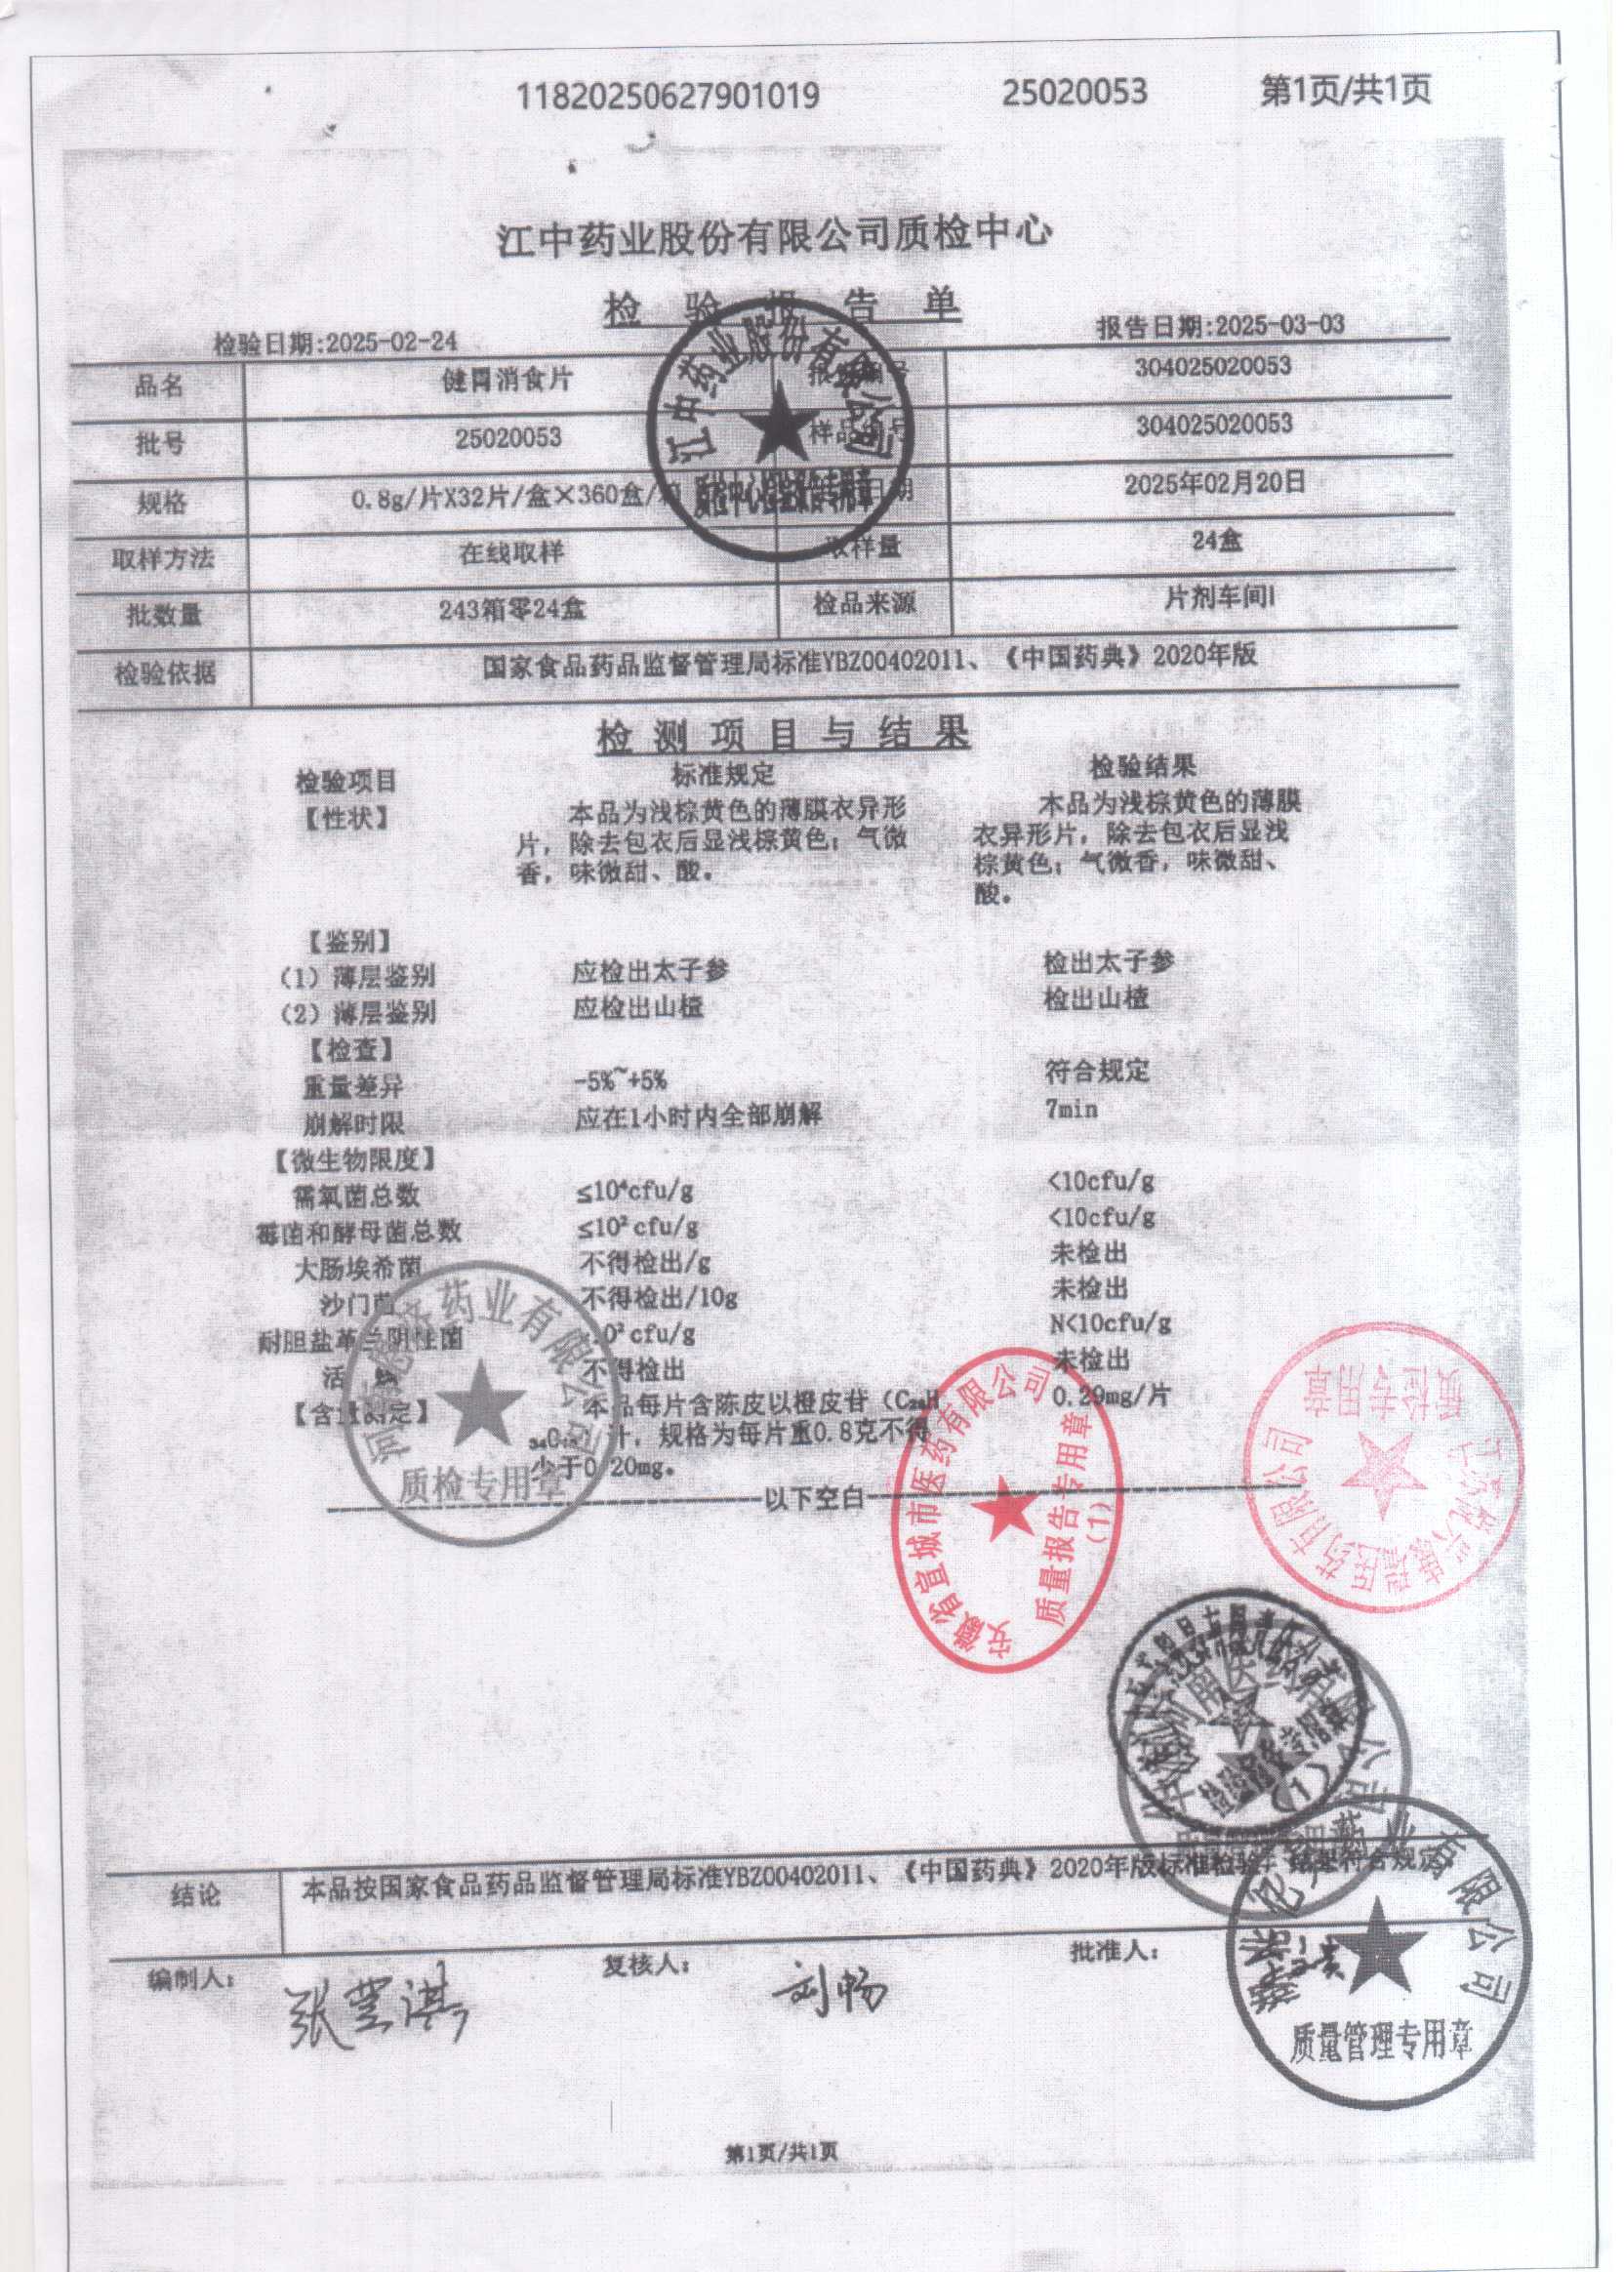 11820250627901019 25020053 第1页/共1页
江中药业股份有限公司质检中心
检验报告单
检验日期:2025-02-24 报告日期:2025-03-03
品名 健胃消食片 304025020053
批号 25020053 304025020053
规格 0.8g/片X32片/盒×360盒/ 日期 2025年02月20日
取样方法 在线取样 取样量 24盒
批数量 243箱零24盒 检品来源 片剂车间I
检验依据 国家食品药品监督管理局标准YBZ00402011、《中国药典》2020年版
江中药业股份有限公司
质检中心检验报告专用章
检测项目与结果
检验项目 标准规定 检验结果
【性状】 本品为浅棕黄色的薄膜衣异形 本品为浅棕黄色的薄膜
片，除去包衣后显浅棕黄色；气微 衣异形片，除去包衣后显浅
香，味微甜、酸。 棕黄色；气微香，味微甜、
酸。
【鉴别】
(1) 薄层鉴别 应检出太子参 检出太子参
(2) 薄层鉴别 应检出山楂 检出山楂
【检查】
重量差异 -5%~+5% 符合规定
崩解时限 应在1小时内全部崩解 7min
【微生物限度】
需氧菌总数 ≤10⁴cfu/g <10cfu/g
霉菌和酵母菌总数 ≤10² cfu/g <10cfu/g
大肠埃希菌 不得检出/g 未检出
沙门菌 不得检出/10g 未检出
耐胆盐革兰阴性菌 0² cfu/g N<10cfu/g
活 不得检出 未检出
【含量测定】 本品每片含陈皮以橙皮苷（C₂₈H 0.29mg/片
₃₄O 计，规格为每片重0.8克不得
少于0.20mg。
以下空白
药业有限公司
质检专用章
安徽省宣城市医药有限公司
质量报告专用章
(1)
医药有限公司
质检专用章
(1)
结论 本品按国家食品药品监督管理局标准YBZ00402011、《中国药典》2020年版标准检验，结果符合规定
有限公司
质量管理专用章
编制人： 复核人： 刘畅 批准人：
第1页/共1页